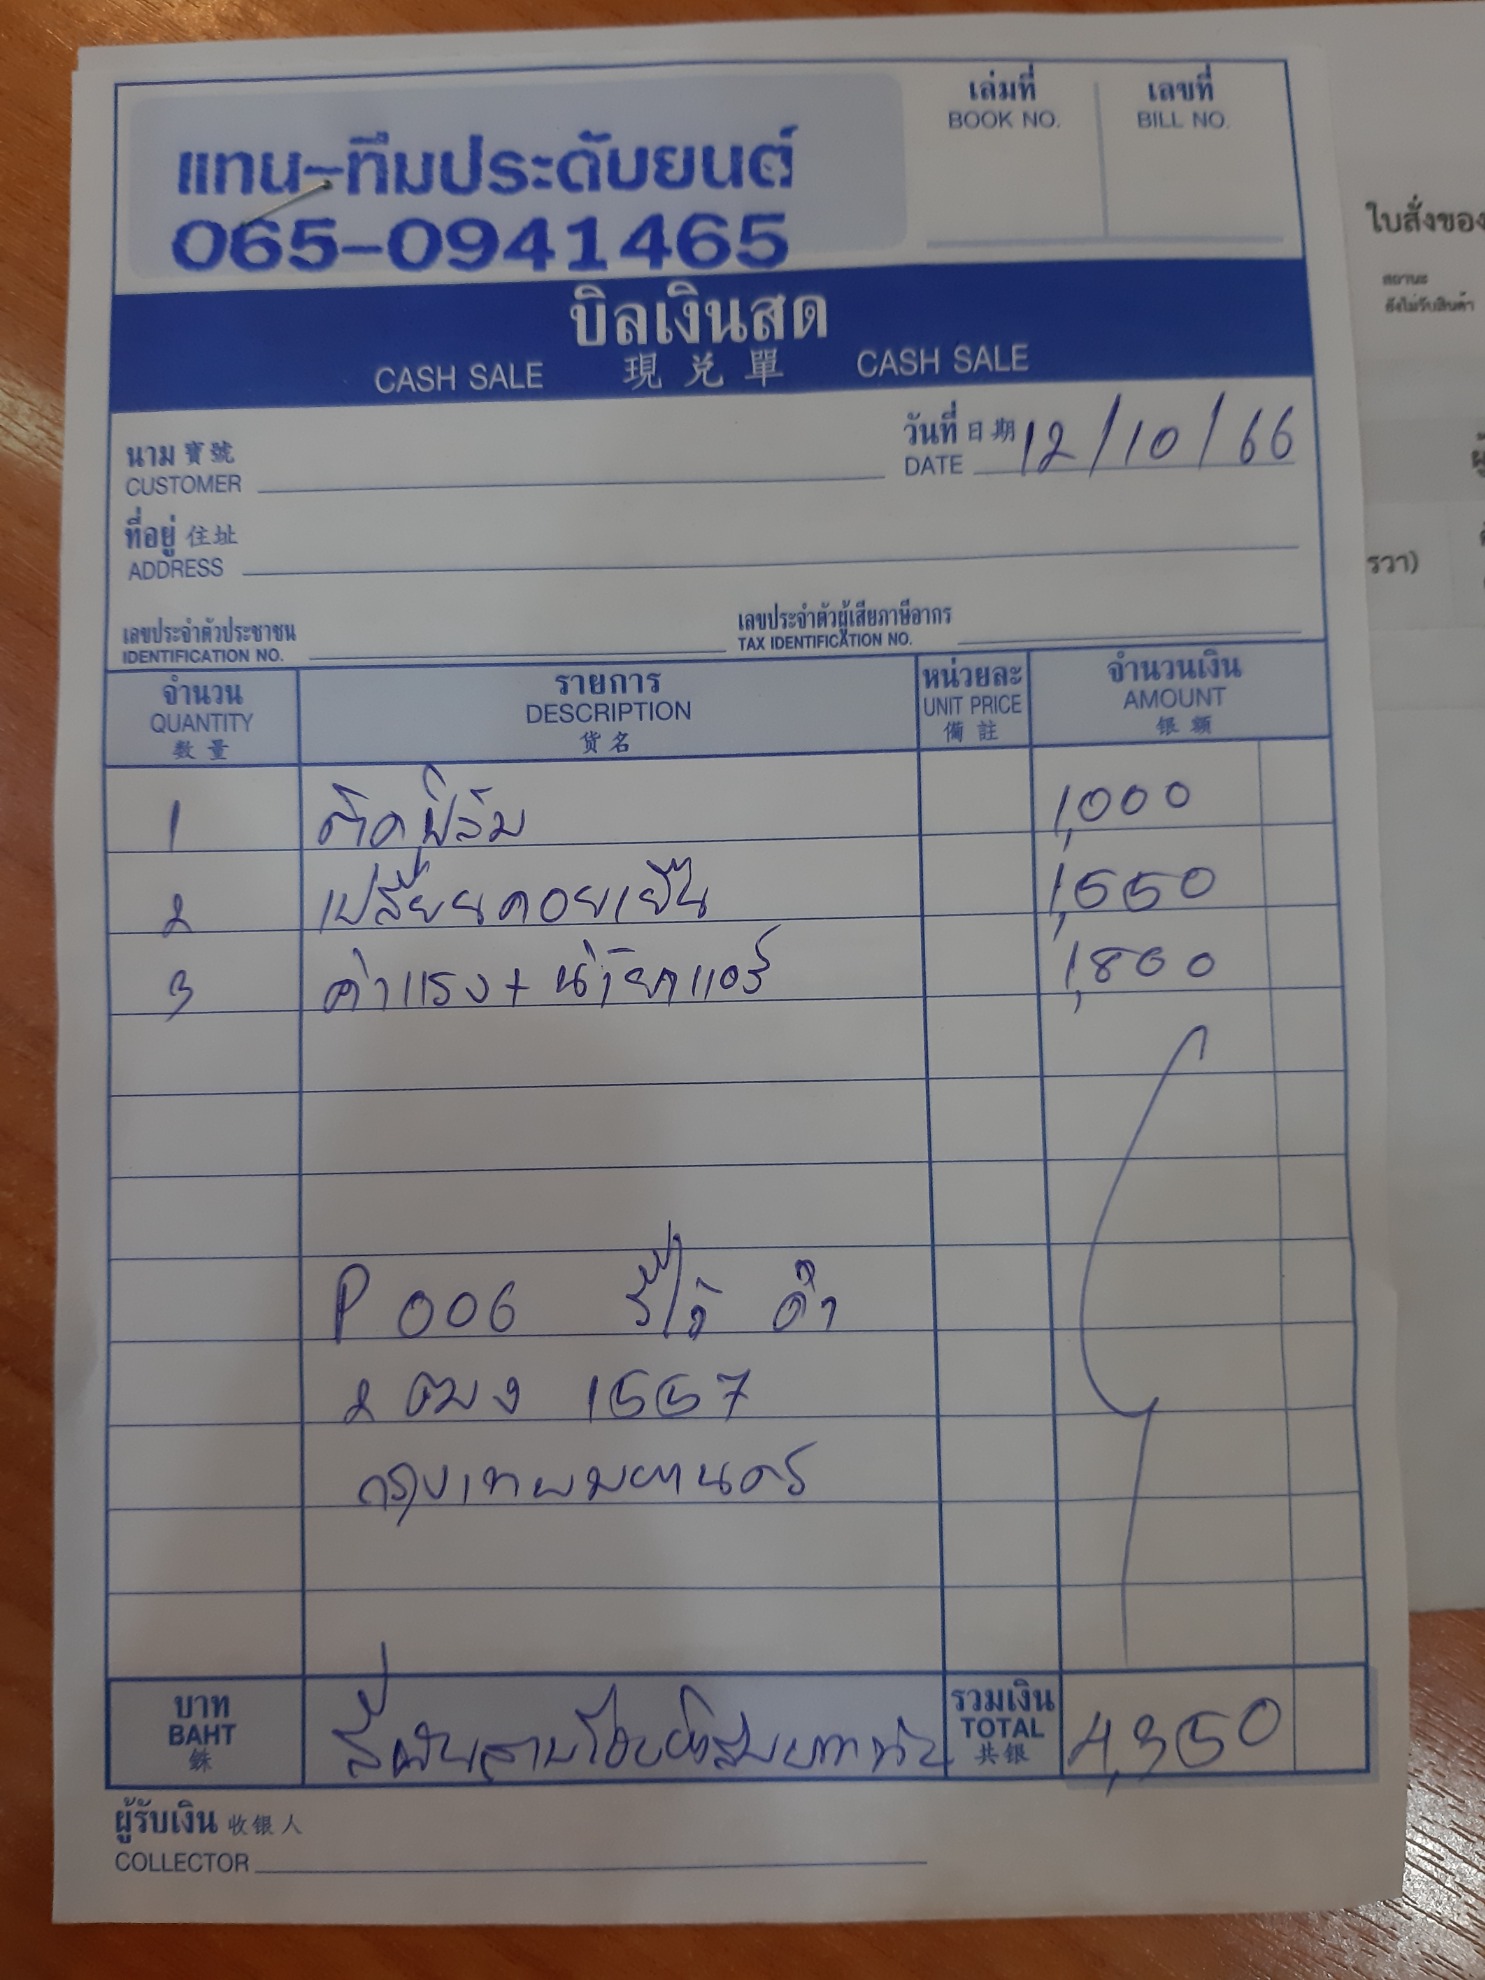 เล่มที่ เลขที่
BOOK NO. BILL NO.
แทน-ทีมประดับยนต์
065-0941465
ใบสั่งของ
สถานะ
ยังไม่รับสินค้า
บิลเงินสด
CASH SALE 現兌單 CASH SALE
นาม 寶號 วันที่ 日期 12/10/66
CUSTOMER DATE
ที่อยู่ 住址
ADDRESS
รวา)
เลขประจำตัวประชาชน เลขประจำตัวผู้เสียภาษีอากร
IDENTIFICATION NO. TAX IDENTIFICATION NO.
จำนวน รายการ หน่วยละ จำนวนเงิน
QUANTITY DESCRIPTION UNIT PRICE AMOUNT
数量 货名 備註 银额
1 ติดฟิล์ม 1,000
2 เปลี่ยนคอยเย็น 1,550
3 ค่าแรง + น้ำยาแอร์ 1,800
P 006 รีโว้ ดำ
2 ฒง 1557
กรุงเทพมหานคร
บาท สี่พันสามร้อยห้าสิบบาทถ้วน รวมเงิน 4,350
BAHT TOTAL
銖 共银
ผู้รับเงิน 收银人
COLLECTOR